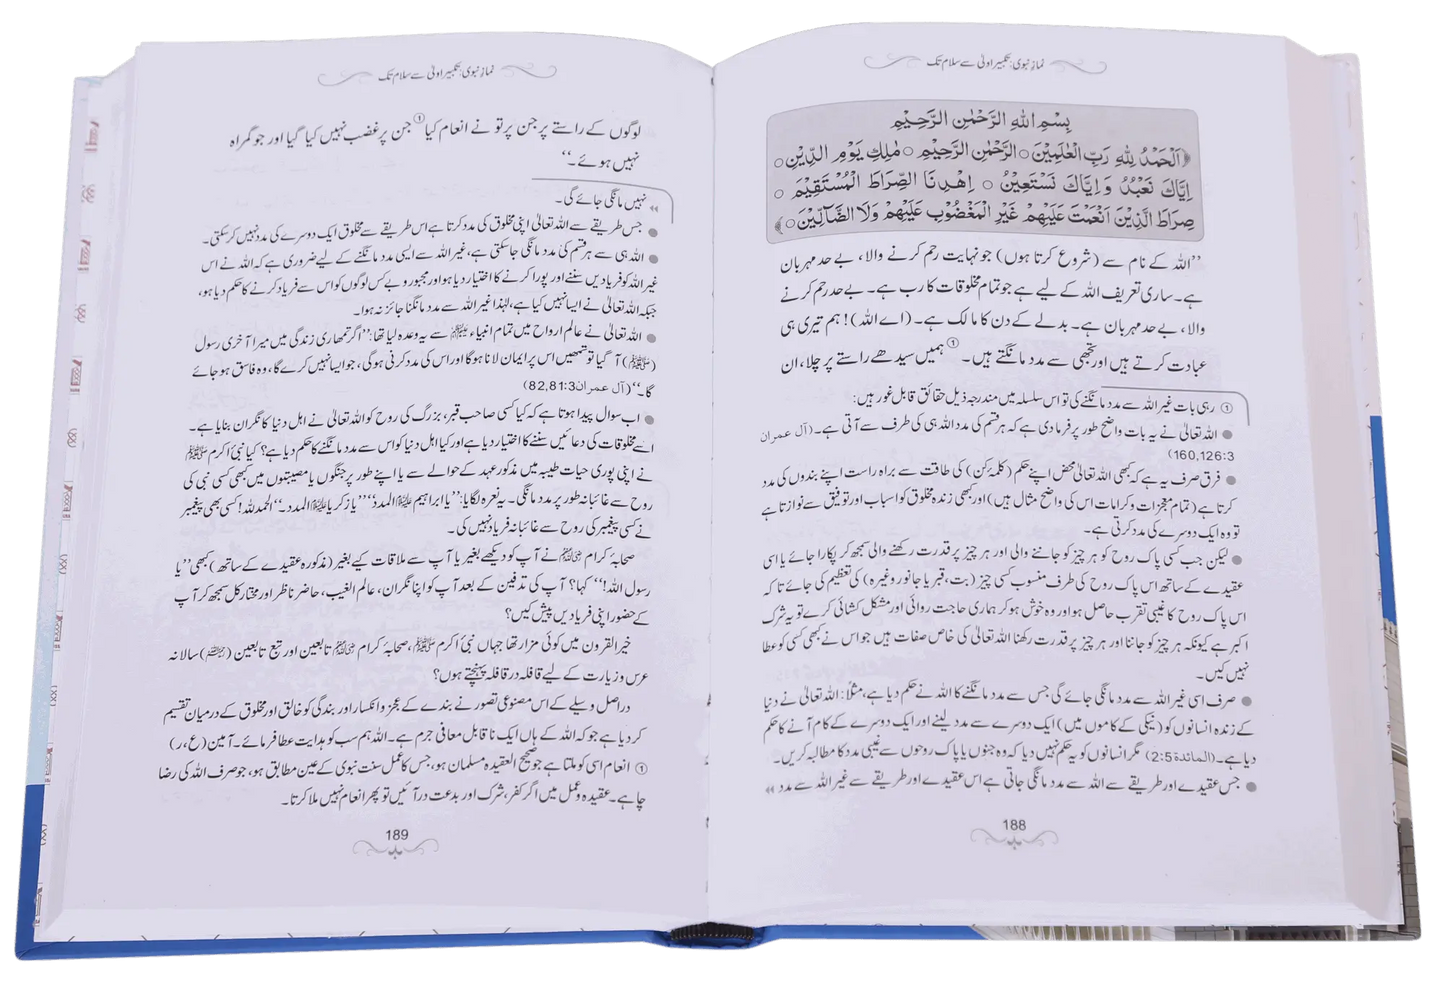 نمازِ نبوی: تکبیر اولیٰ سے سلام تک
بِسْمِ اللهِ الرَّحْمٰنِ الرَّحِيْمِ
﴿اَلْحَمْدُ لِلّٰهِ رَبِّ الْعٰلَمِيْنَ ○ الرَّحْمٰنِ الرَّحِيْمِ ○ مٰلِكِ يَوْمِ الدِّيْنِ ○
اِيَّاكَ نَعْبُدُ وَاِيَّاكَ نَسْتَعِيْنُ ○ اِهْدِنَا الصِّرَاطَ الْمُسْتَقِيْمَ ○
صِرَاطَ الَّذِيْنَ اَنْعَمْتَ عَلَيْهِمْ غَيْرِ الْمَغْضُوْبِ عَلَيْهِمْ وَلَا الضَّآلِّيْنَ ○﴾
’’اللہ کے نام سے (شروع کرتا ہوں) جو نہایت رحم کرنے والا، بے حد مہربان
ہے۔ ساری تعریف اللہ کے لیے ہے جو تمام مخلوقات کا رب ہے۔ بے حد رحم کرنے
والا، بے حد مہربان ہے۔ بدلے کے دن کا مالک ہے۔ (اے اللہ)! ہم تیری ہی
عبادت کرتے ہیں اور تجھی سے مدد مانگتے ہیں۔① ہمیں سیدھے راستے پر چلا، ان
① رہی بات غیر اللہ سے مدد مانگنے کی تو اس سلسلہ میں مندرجہ ذیل حقائق قابل غور ہیں:
● اللہ تعالیٰ نے یہ بات واضح طور پر فرما دی ہے کہ ہر قسم کی مدد اللہ ہی کی طرف سے آتی ہے۔ (آل عمران
160,126:3)
● فرق صرف یہ ہے کہ کبھی اللہ تعالیٰ محض اپنے حکم (کلمۂ کن) کی طاقت سے براہ راست اپنے بندوں کی مدد
کرتا ہے (تمام معجزات و کرامات اس کی واضح مثال ہیں) اور کبھی زندہ مخلوق کو اسباب اور توفیق سے نوازتا ہے
تو وہ ایک دوسرے کی مدد کرتی ہے۔
● لیکن جب کسی پاک روح کو ہر چیز کو جاننے والی اور ہر چیز پر قدرت رکھنے والی سمجھ کر پکارا جائے یا اسی
عقیدے کے ساتھ اس پاک روح کی طرف منسوب کسی چیز (بت، قبر یا جانور وغیرہ) کی تعظیم کی جائے تاکہ
اس پاک روح کا غیبی تقرب حاصل ہو اور وہ خوش ہو کر ہماری حاجت روائی اور مشکل کشائی کرے تو یہ شرک
اکبر ہے کیونکہ ہر چیز کو جاننا اور ہر چیز پر قدرت رکھنا اللہ تعالیٰ کی خاص صفات ہیں جو اس نے کبھی کسی کو عطا
نہیں کیں۔
● صرف اسی غیر اللہ سے مدد مانگی جائے گی جس سے مدد مانگنے کا اللہ نے حکم دیا ہے، مثلاً: اللہ تعالیٰ نے دنیا
کے زندہ انسانوں کو (نیکی کے کاموں میں) ایک دوسرے سے مدد لینے اور ایک دوسرے کے کام آنے کا حکم
دیا ہے۔ (المائدة 2:5) مگر انسانوں کو یہ حکم نہیں دیا کہ وہ جنوں یا پاک روحوں سے غیبی مدد کا مطالبہ کریں۔
● جس عقیدے اور طریقے سے اللہ سے مدد مانگی جاتی ہے اس عقیدے اور طریقے سے غیر اللہ سے مدد »
188
نمازِ نبوی: تکبیر اولیٰ سے سلام تک
لوگوں کے راستے پر جن پر تو نے انعام کیا① جن پر غضب نہیں کیا گیا اور جو گمراہ
نہیں ہوئے۔‘‘
» نہیں مانگی جائے گی۔
● جس طریقے سے اللہ تعالیٰ اپنی مخلوق کی مدد کرتا ہے اس طریقے سے مخلوق ایک دوسرے کی مدد نہیں کر سکتی۔
● اللہ ہی سے ہر قسم کی مدد مانگی جا سکتی ہے، غیر اللہ سے ایسی مدد مانگنے کے لیے ضروری ہے کہ اللہ نے اس
غیر اللہ کو فریادیں سننے اور پورا کرنے کا اختیار دیا ہو اور مجبور و بے کس لوگوں کو اس سے فریاد کرنے کا حکم دیا ہو،
جبکہ اللہ تعالیٰ نے ایسا نہیں کیا ہے، لہٰذا غیر اللہ سے مدد مانگنا جائز نہ ہوا۔
● اللہ تعالیٰ نے عالم ارواح میں تمام انبیاء ﷺ سے یہ وعدہ لیا تھا: ’’اگر تمھاری زندگی میں میرا آخری رسول
(ﷺ) آ گیا تو تمھیں اس پر ایمان لانا ہوگا اور اس کی مدد کرنی ہوگی، جو ایسا نہیں کرے گا، وہ فاسق ہو جائے
گا۔‘‘ (آل عمران 82,81:3)
● اب سوال پیدا ہوتا ہے کہ کیا کسی صاحب قبر، بزرگ کی روح کو اللہ تعالیٰ نے اہل دنیا کا نگران بنایا ہے۔
اسے مخلوقات کی دعائیں سننے کا اختیار دیا ہے اور کیا اہل دنیا کو اس سے مدد مانگنے کا حکم دیا ہے؟ کیا نبی اکرم ﷺ
نے اپنی پوری حیات طیبہ میں مذکور عہد کے حوالے سے یا اپنے طور پر جنگوں یا مصیبتوں میں کبھی کسی نبی کی
روح سے غائبانہ طور پر مدد مانگی۔ یہ نعرہ لگایا: ’’یا ابراہیم ﷺ المدد‘‘ ’’یا زکریا ﷺ المدد۔‘‘ الحمد للہ! کسی بھی پیغمبر
نے کسی پیغمبر کی روح سے غائبانہ فریاد نہیں کی۔
صحابۂ کرام ﷺ نے آپ کو دیکھے بغیر یا آپ سے ملاقات کیے بغیر (مذکورہ عقیدے کے ساتھ) کبھی ’’یا
رسول اللہ!‘‘ کہا؟ آپ کی تدفین کے بعد آپ کو اپنا نگران، عالم الغیب، حاضر ناظر اور مختار کل سمجھ کر آپ
کے حضور اپنی فریادیں پیش کیں؟
خیر القرون میں کوئی مزار تھا جہاں نبیٔ اکرم ﷺ، صحابۂ کرام ﷺ تابعین اور تبع تابعین (ﷺ) سالانہ
عرس و زیارت کے لیے قافلہ در قافلہ پہنچتے ہوں؟
دراصل وسیلے کے اس مصنوعی تصور نے بندے کے عجز و انکسار اور بندگی کو خالق اور مخلوق کے درمیان تقسیم
کر دیا ہے جو کہ اللہ کے ہاں ایک ناقابل معافی جرم ہے۔ اللہ ہم سب کو ہدایت عطا فرمائے۔ آمین (ع،ر)
① انعام اسی کو ملتا ہے جو صحیح العقیدہ مسلمان ہو، جس کا عمل سنت نبوی کے عین مطابق ہو، جو صرف اللہ کی رضا
چاہے۔ عقیدہ و عمل میں اگر کفر، شرک اور بدعت در آئیں تو پھر انعام نہیں ملا کرتا۔
189